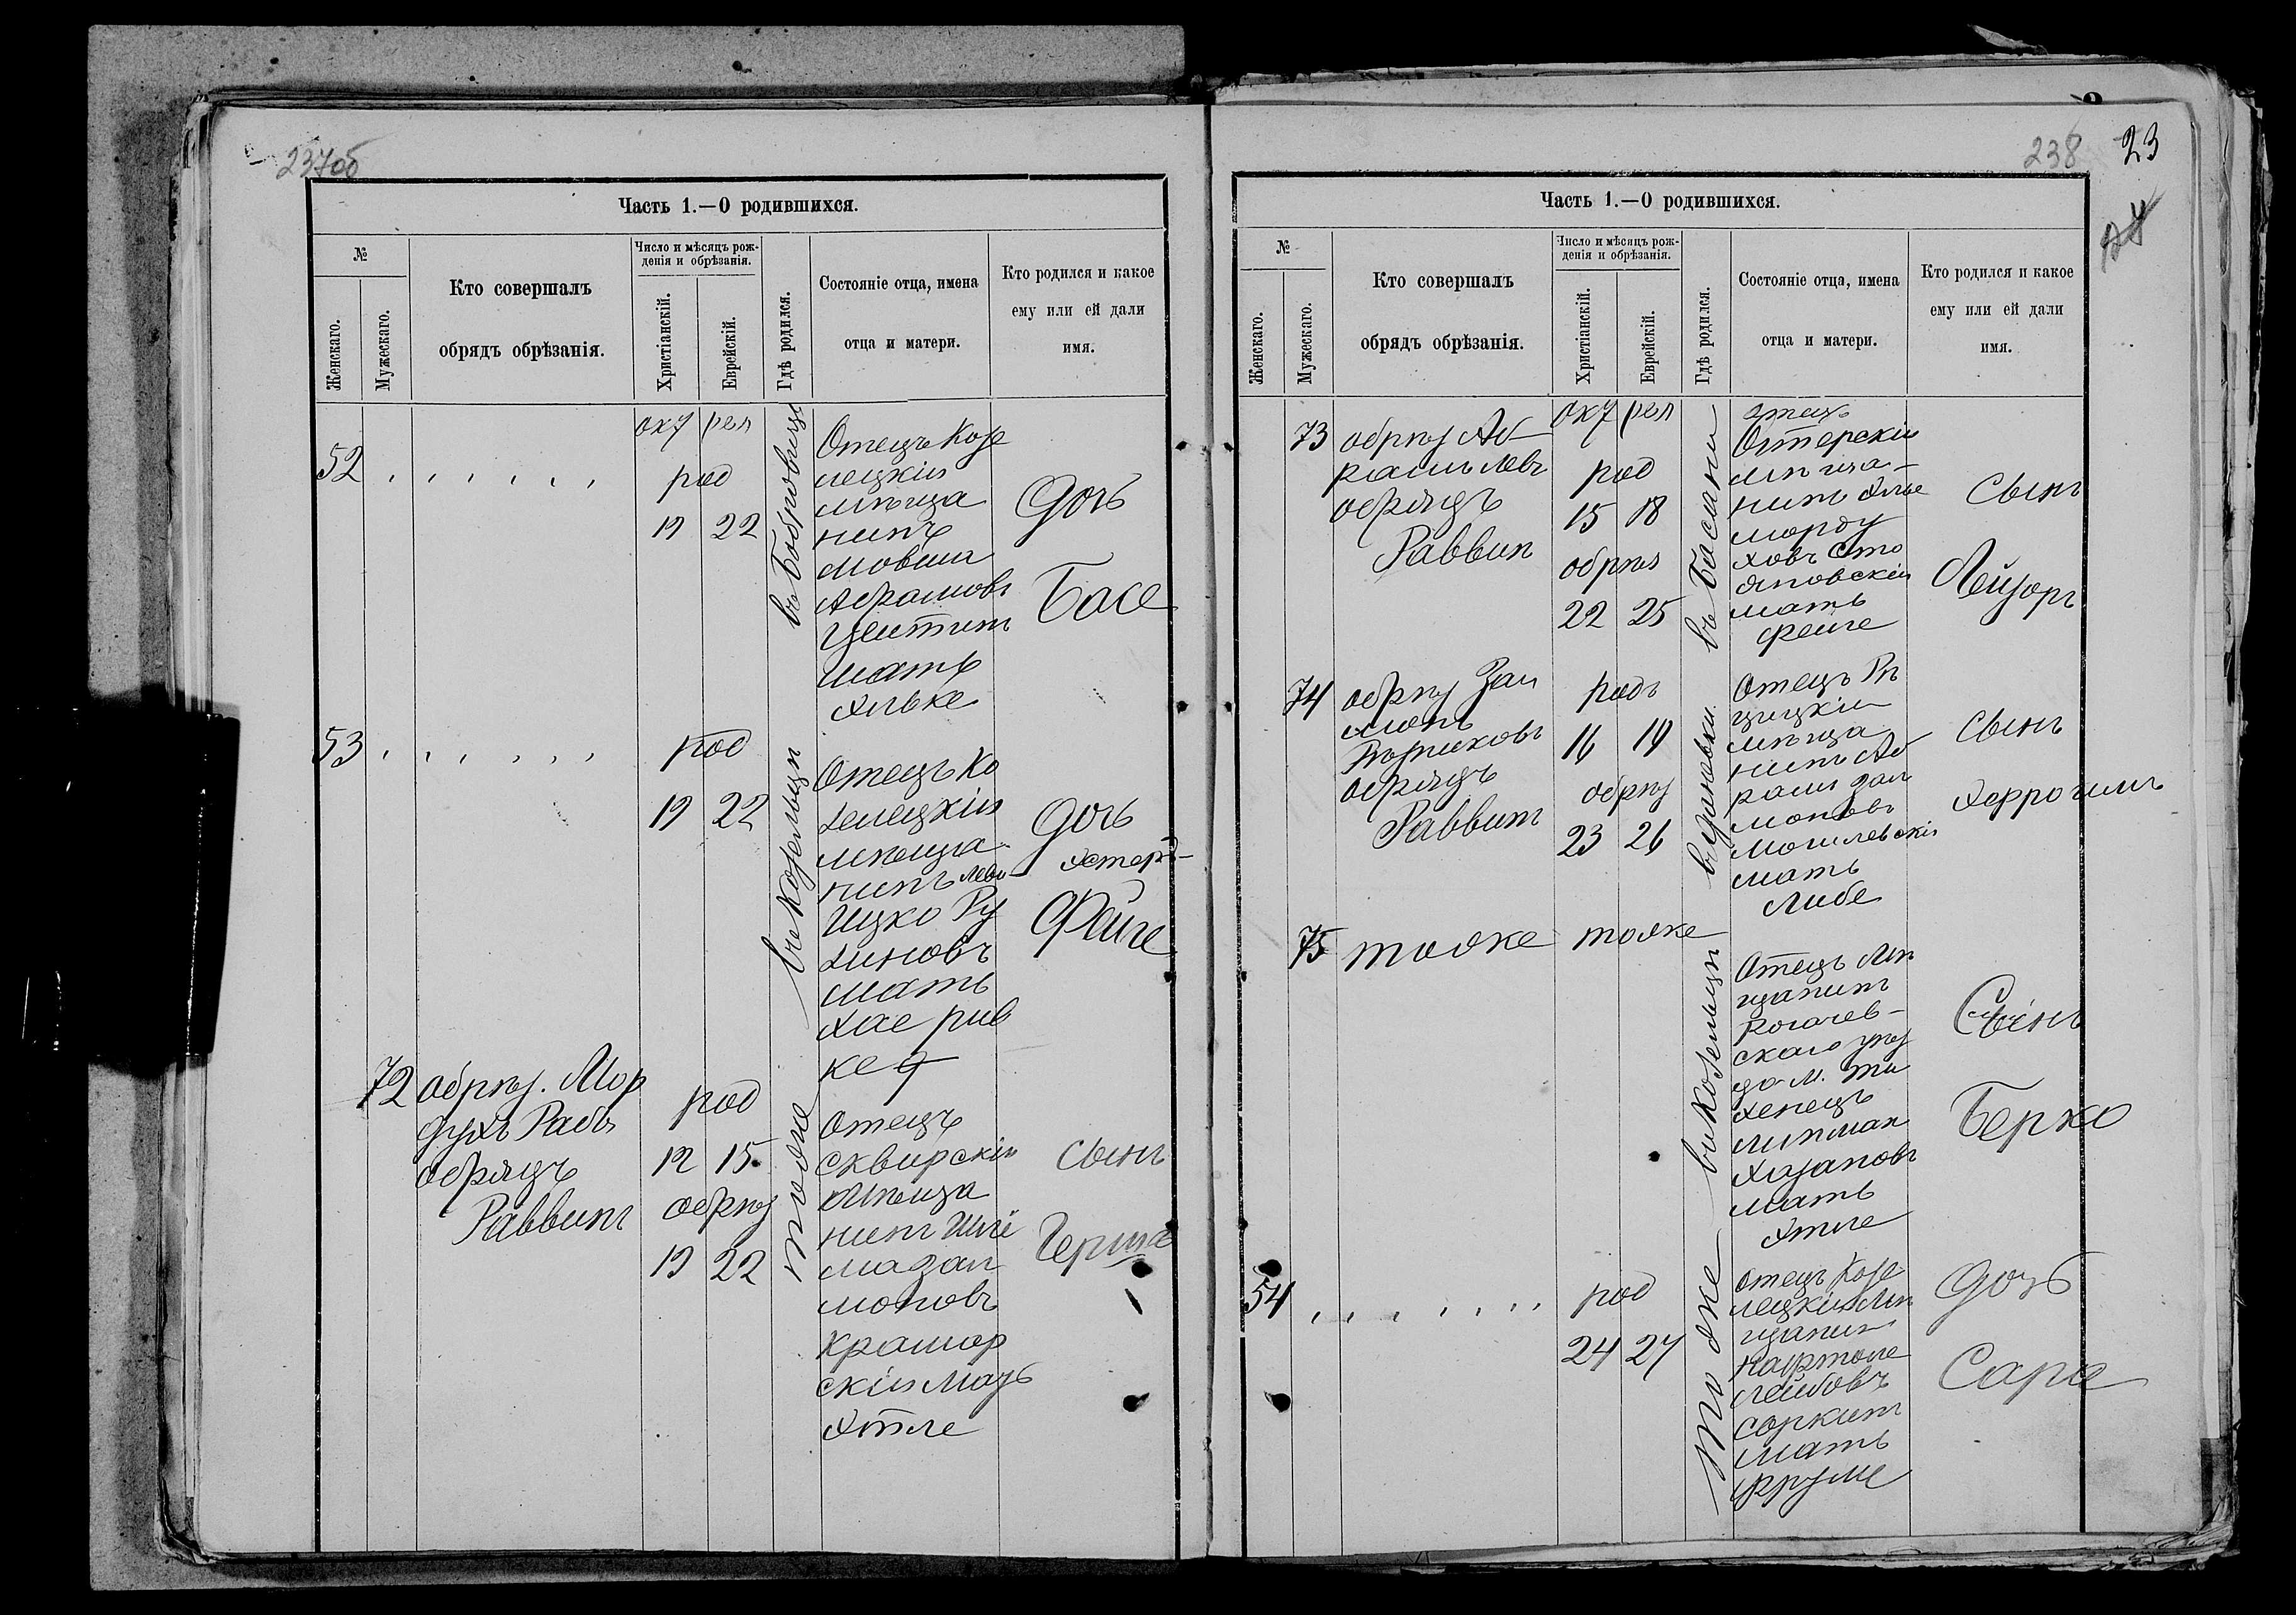 237об
Часть 1.—О родившихся.
№
Женскаго.
Мужескаго.
Кто совершалъ
обрядъ обрѣзанія.
Число и мѣсяцъ рож-
денія и обрѣзанія.
Христіанскій.
Еврейскій.
Гдѣ родился.
Состояніе отца, имена
отца и матери.
Кто родился и какое
ему или ей дали
имя.
52
род
19 22
въ Бобровицѣ
Отецъ Козе
лецкій
мѣща
нинъ
Мовша
Абрамовъ
мать
Дочь
Басе
53
род
19 22
въ Козельцѣ
Отецъ Ко
зелецкій
мѣща
нинъ
Ицко Ру
биновъ
мать
Хае Рив
ке
Дочь
Фейге
72
обрѣз. Мор
духъ Рабъ
обрядъ
Раввинъ
род
12 15
обрѣз
19 22
тоже
Отецъ
Сквирскій
мѣща
нинъ
Зал
моновъ
Крамар
скій мать
Этле
сынъ
Герша
238 23
Часть 1.—О родившихся.
№
Женскаго.
Мужескаго.
Кто совершалъ
обрядъ обрѣзанія.
Число и мѣсяцъ рож-
денія и обрѣзанія.
Христіанскій.
Еврейскій.
Гдѣ родился.
Состояніе отца, имена
отца и матери.
Кто родился и какое
ему или ей дали
имя.
73
обрѣз Аб
рамъ Левъ
обрядъ
Раввин
род
15 18
обрѣз
22 25
въ Басани
отецъ
Остерскій
мѣща-
нинъ
Морду
ховъ Сто
яновскій
мать
Фейге
Сынъ
Лейзоръ
74
обрѣз Зал
монъ
Рѣзниковъ
обрядъ
Раввинъ
родъ
16 19
обрѣз
23 26
Отецъ Рѣ
чицкій
мѣща
нинъ Аб
рамъ Зал
моновъ
Могилевскій
мать
Либе
сынъ
Эфроимъ
75
тоже
тоже
въ Козельцѣ
Отецъ мѣ
щанинъ
Рогачев-
скаго уѣз
да м.
Липман
Хазановъ
мать
Этле
Сынъ
Берко
54
род
24 27
тоже
Отецъ Козе
лецкій мѣ
щанинъ
Нафтоле
Лейбовъ
Соркинъ
мать
Фруме
Дочь
Саре